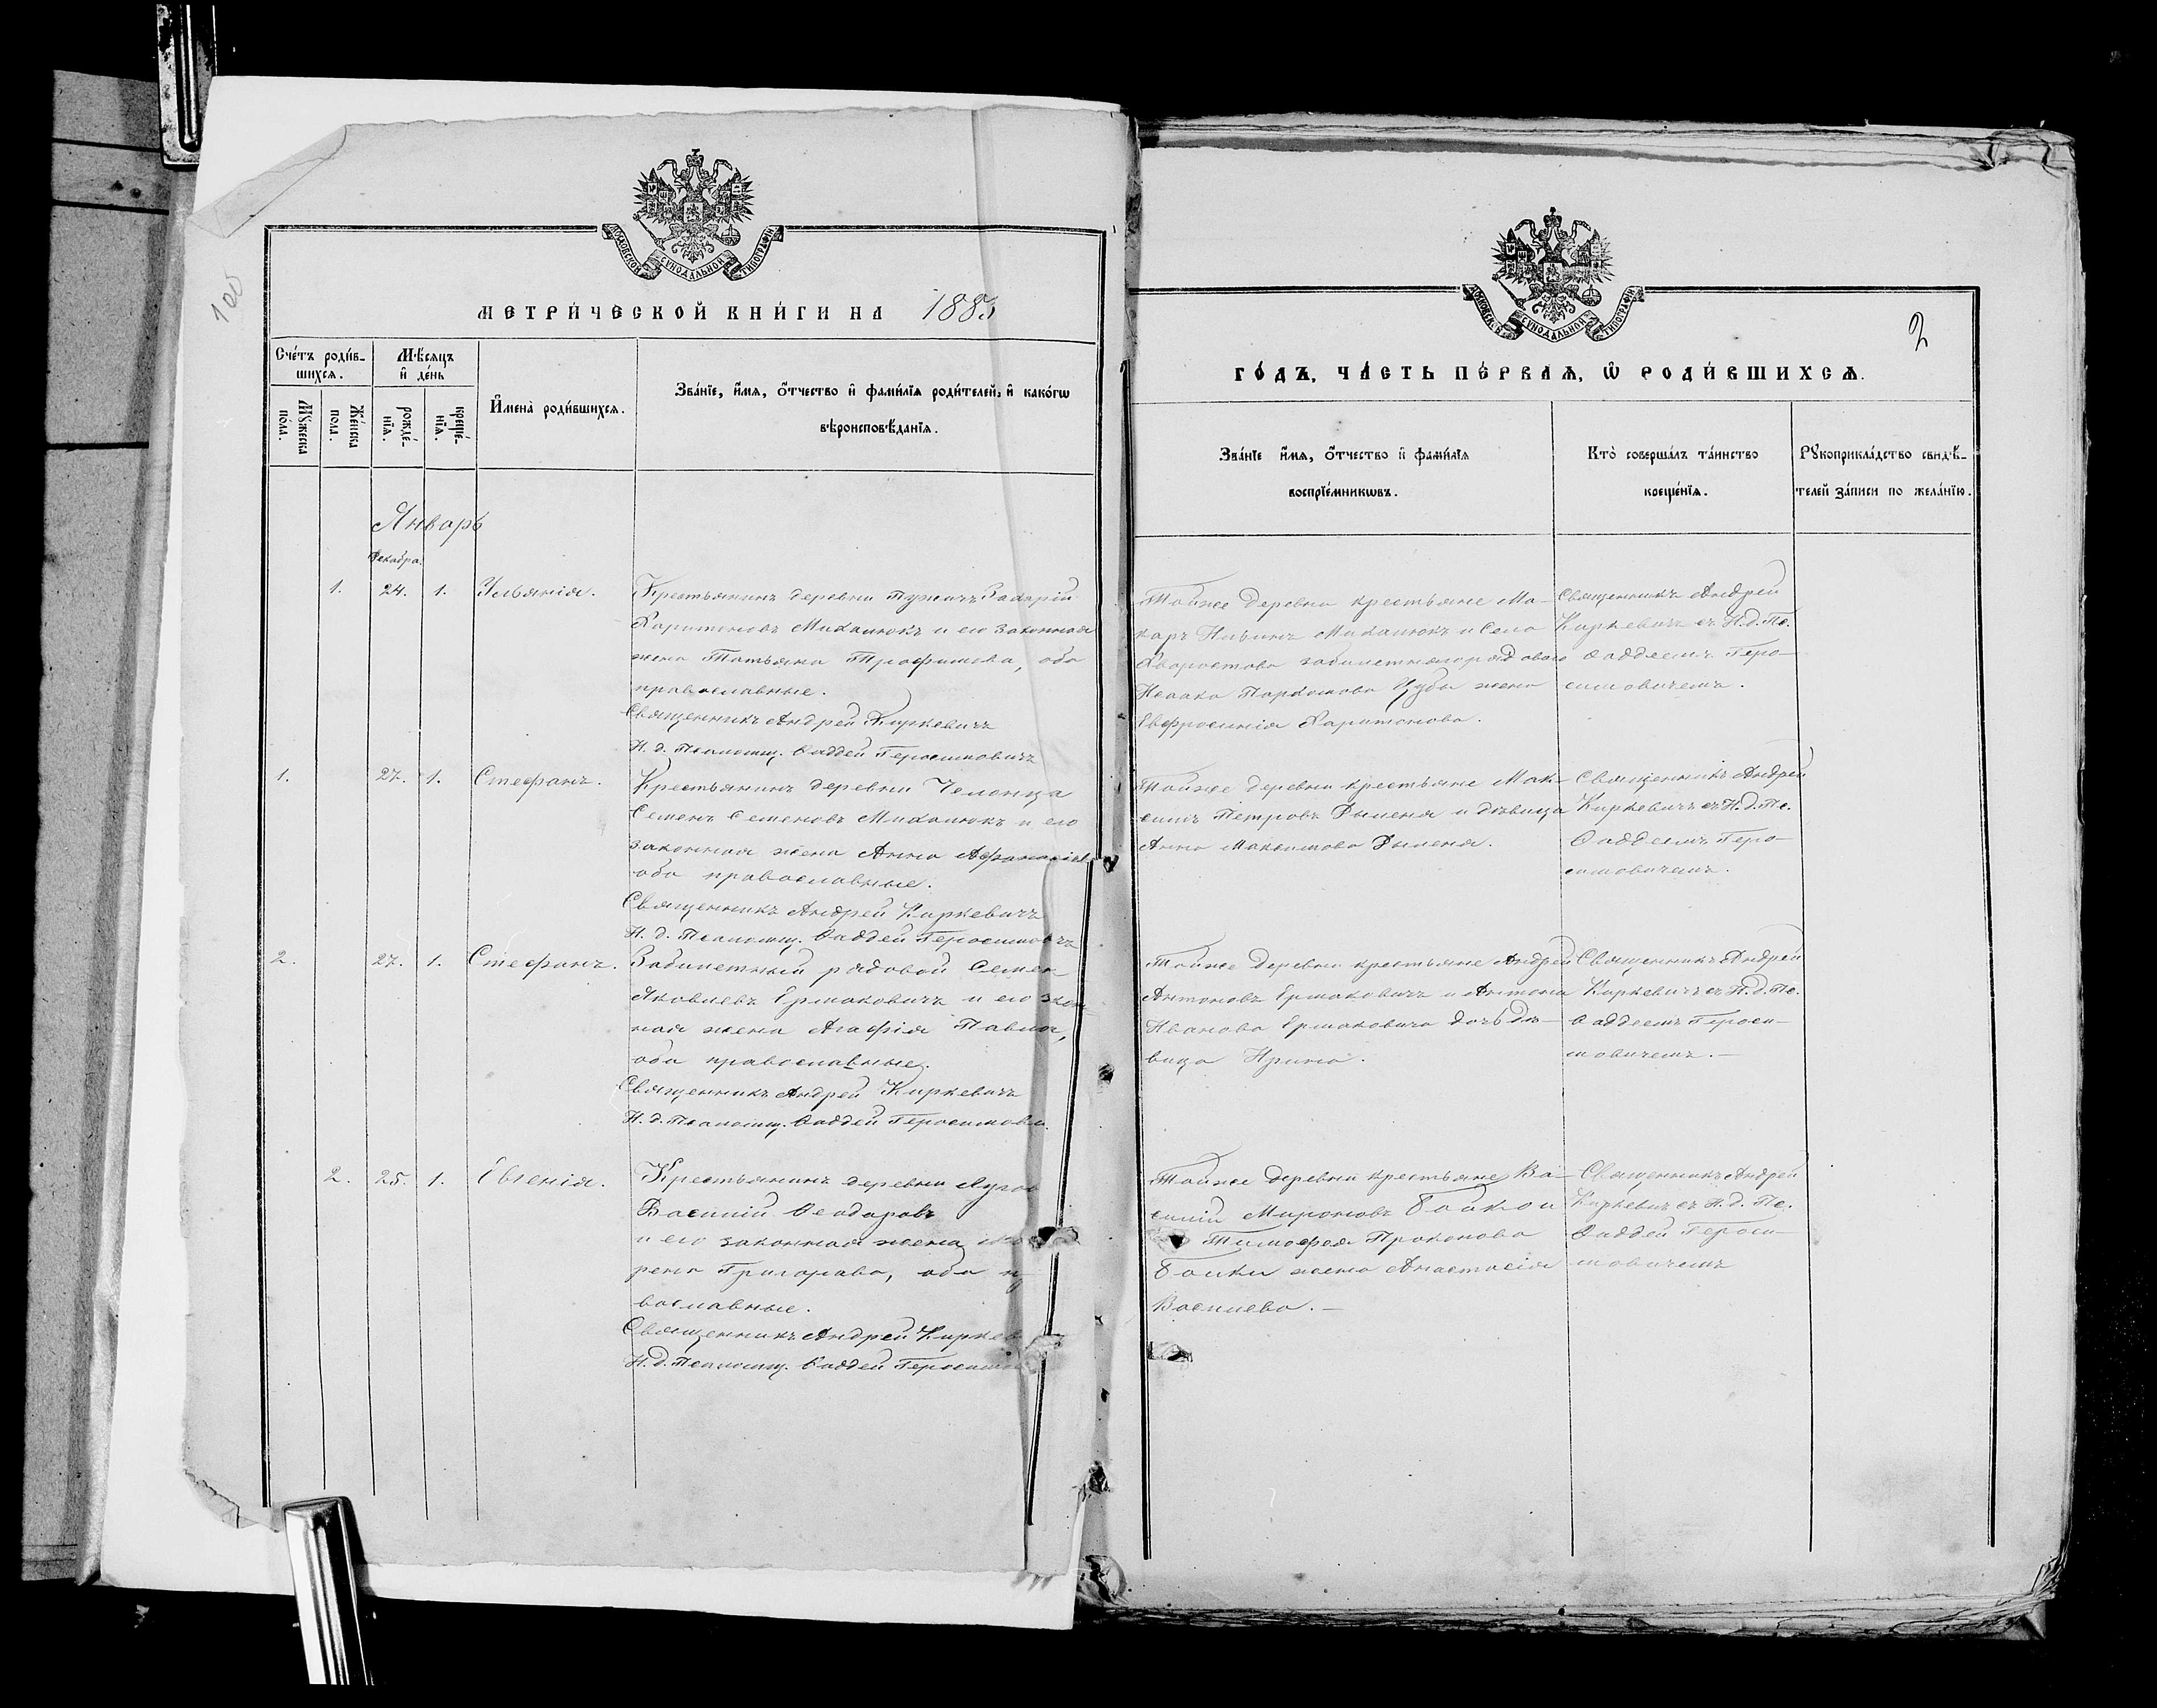 МОСКОВСКОЙ СѴНОДАЛЬНОЙ ТИПОГРАФІИ
МЕТРИ́ЧЕСКОЙ КНИ́ГИ НА 1883
Сче́тъ роди́в-
шихсѧ.
Мѣ́сѧцъ
и҆ де́нь
И҆мена̀ роди́вшихсѧ.
Зва́нїе, и҆́мѧ, ѻ҆́тчество и҆ фами́лїѧ роди́телей, и҆ како́гѡ
вѣроисповѣ́данїѧ.
Мꙋ́жеска
по́ла.
Же́нска
пола.
рожде́-
нїѧ.
креще́-
нїѧ.
Январь
Декабря
1. 24. 1. Ульянія.
Крестьянинъ деревни Захарій
Харитоновъ Михалюкъ и его законная
жена Татьяна Трофимова, оба
православные.
Священникъ Андрей Киркевичъ
И. д. Псаломщ. Ѳаддей Геросимовичъ
1. 27. 1. Стефанъ.
Крестьянинъ деревни
Семенъ Семеновъ Михалюкъ и его
законная жена Анна
оба православные.
Священникъ Андрей Киркевичъ
И. д. Псаломщ. Ѳаддей Геросимовичъ
2. 27. 1. Стефанъ.
Забилетный рядовой Семен
Яковлевъ Ермаковичъ и его
ная жена Агафія Павлов,
оба православные.
Священникъ Андрей Киркевичъ
И. д. Псаломщ. Ѳаддей Геросимови
2. 25. 1. Евгенія.
Крестьянинъ деревни
Василій Ѳеодоровъ
и его законная жена
рена Григорова, оба п
вославные.
Священникъ Андрей Киркев
И. д. Псаломщ. Ѳаддей Геросимо
МОСКОВСКОЙ СѴНОДАЛЬНОЙ ТИПОГРАФІИ
2
ГО́ДЪ, ЧА́СТЬ ПЕ́РВАѦ, Ѽ РОДИ́ВШИХСѦ.
Зва́нїе и҆́мѧ, ѻ҆́тчество и҆ фами́лїѧ
воспрїе́мникѡвъ.
Кто̀ соверша́лъ та́инство
креще́нїѧ.
Рꙋкоприкла́дство свидѣ́-
телей за́писи по жела́нїю.
Тойже деревни крестьяне Ма-
каръ Ильинъ Михалюкъ и села
Хворостова забилетнаго рядоваго
Исаака Пархомова жена
Евфросинія Харитонова.
Священникъ Андрей
Киркевичъ съ И. д. Пс.
Ѳаддеемъ Геро-
симовичемъ.
Тойже деревни крестьяне Мак-
симъ Петровъ и дѣвица
Анна Максимова
Священникъ Андрей
Киркевичъ съ И. д. Пс.
Ѳаддеемъ Геро-
симовичемъ.
Тойже деревни крестьяне Андрей
Антоновъ Ермаковичъ и Антона
Иванова Ермаковича дочь дѣ-
вица Ирина.
Священникъ Андрей
Киркевичъ съ И. д. Пс.
Ѳаддеемъ Героси-
мовичемъ.-
Тойже деревни крестьяне Ва-
силій Мироновъ Бойко и
Тимофея Прохонова
Бойки жена Анастасія
Васильева.-
Священникъ Андрей
Киркевичъ съ И. д. Пс.
Ѳаддей Героси-
мовичемъ